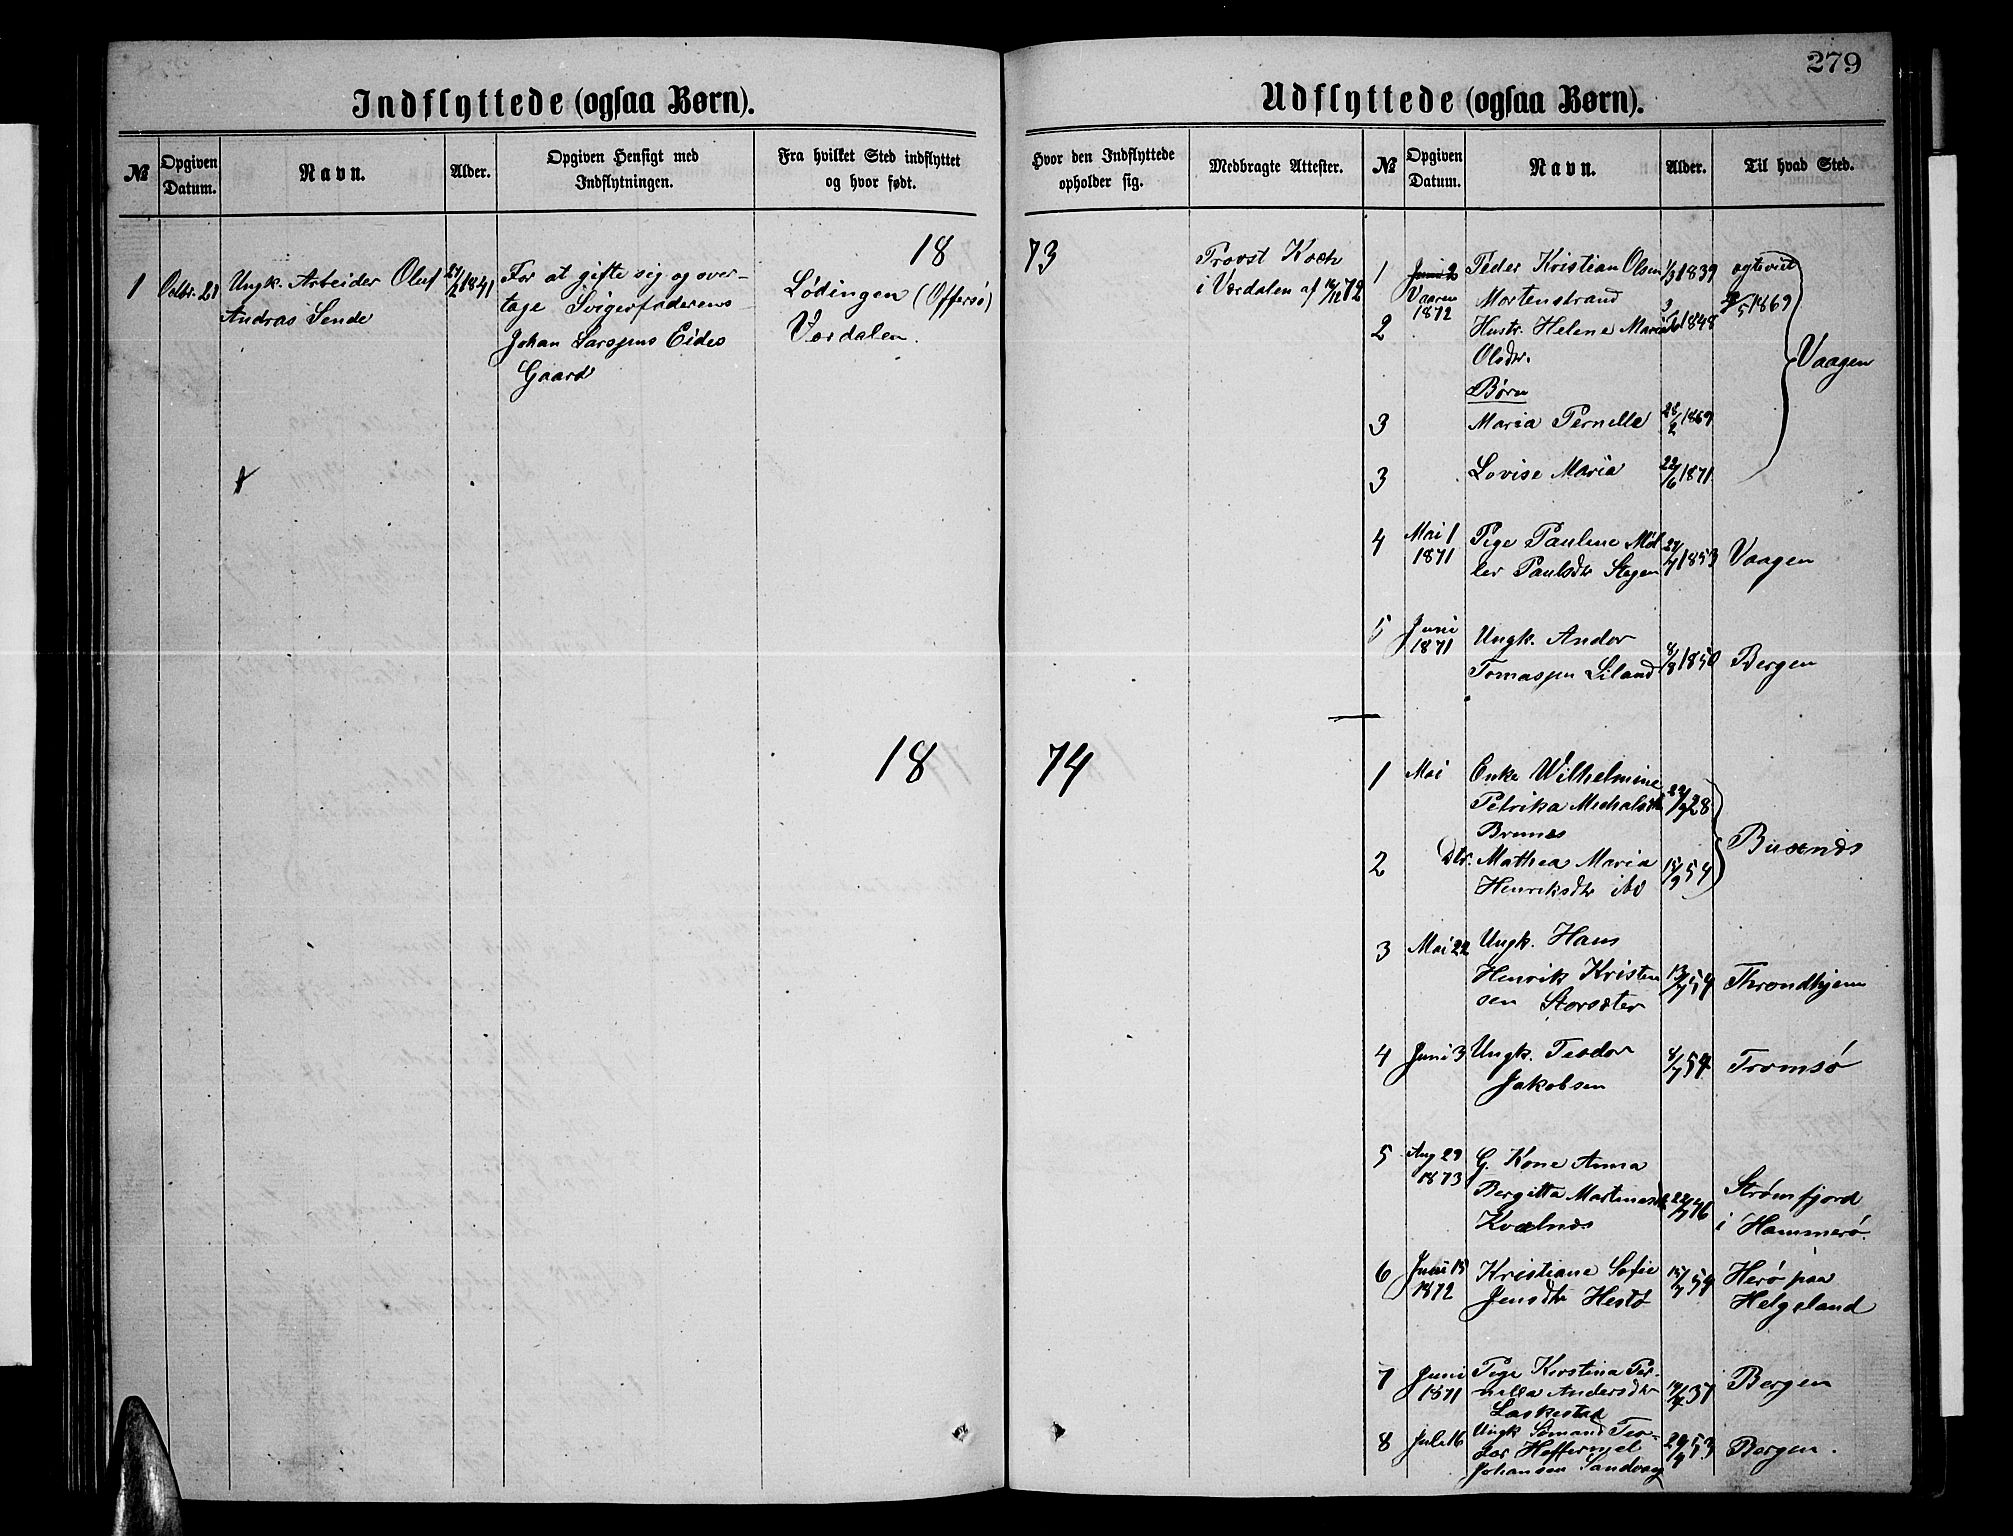 279
Indflyttede (ogsaa Børn).
№
Opgiven Datum.
Navn.
Alder.
Opgiven Hensigt med Indflytningen.
Fra hvilket Sted indflyttet og hvor født.
18
1
Octbr. 21
Ungk. Arbeider Oluf
Andras Sende
27/2 1841
For at gifte sig og over-
tage Svigerfaderens
Johan Larssens Eides
Gaard
Lødingen (Offersø)
Værdalen.
18
Udflyttede (ogsaa Børn).
Hvor den Indflyttede opholder sig.
Medbragte Attester.
№
Opgiven Datum.
Navn.
Alder.
Til hvad Sted.
73
Provst Koch
i Værdalen af 14/12 72
1
Juni 2
Vaaren
1872
Peder Kristian Olsen
Mortenstrand
1/3 1839
ægteviet
5 1869
2
Hustr. Helene Maria
Olsdtr.
1848
Vaagen
Børn
3
Maria Pernelle
28/2 1869
3
Lovise Maria
22/6 1871
4
Mai 1
1871
Pige Pauline Møl
ler Paulsdtr Stegen
27/7 1853
Vaagen
5
Juni
1871
Ungk. Andor
Tomassen Liland
8/8 1850
Bergen
74
1
Mai
Enke Wilhelmine
Petrika Michalsdtr
Brunes
28
2
Dtr. Mathea Maria
Henriksdtr ibd
15/9 54
Buxnæs
3
Mai 22
Ungk. Hans
Henrik Kristen
sen Storsæter
13/7 54
Throndhjem
4
Juni 3
Ungk. Teodor
Jakobsen
8/7 54
Tromsø
5
Aug 29
1873
G. Kone Anna
Bergitta Martinusdtr
Kvalnæs
22/7 46
Strømfjord
i Hammerø.
6
Juni 15
1872
Kristiane Sofie
Jensdtr Hestø
15/7 54
Herø paa
Helgeland
7
Juni
1871
Pige Kirstina Per-
nilla Andersdtr
Laskestad
37
Bergen
8
Juli 16
Ungk Simand Teo-
dor Heffermel
Johansen Sandvaag
53
Bergen.